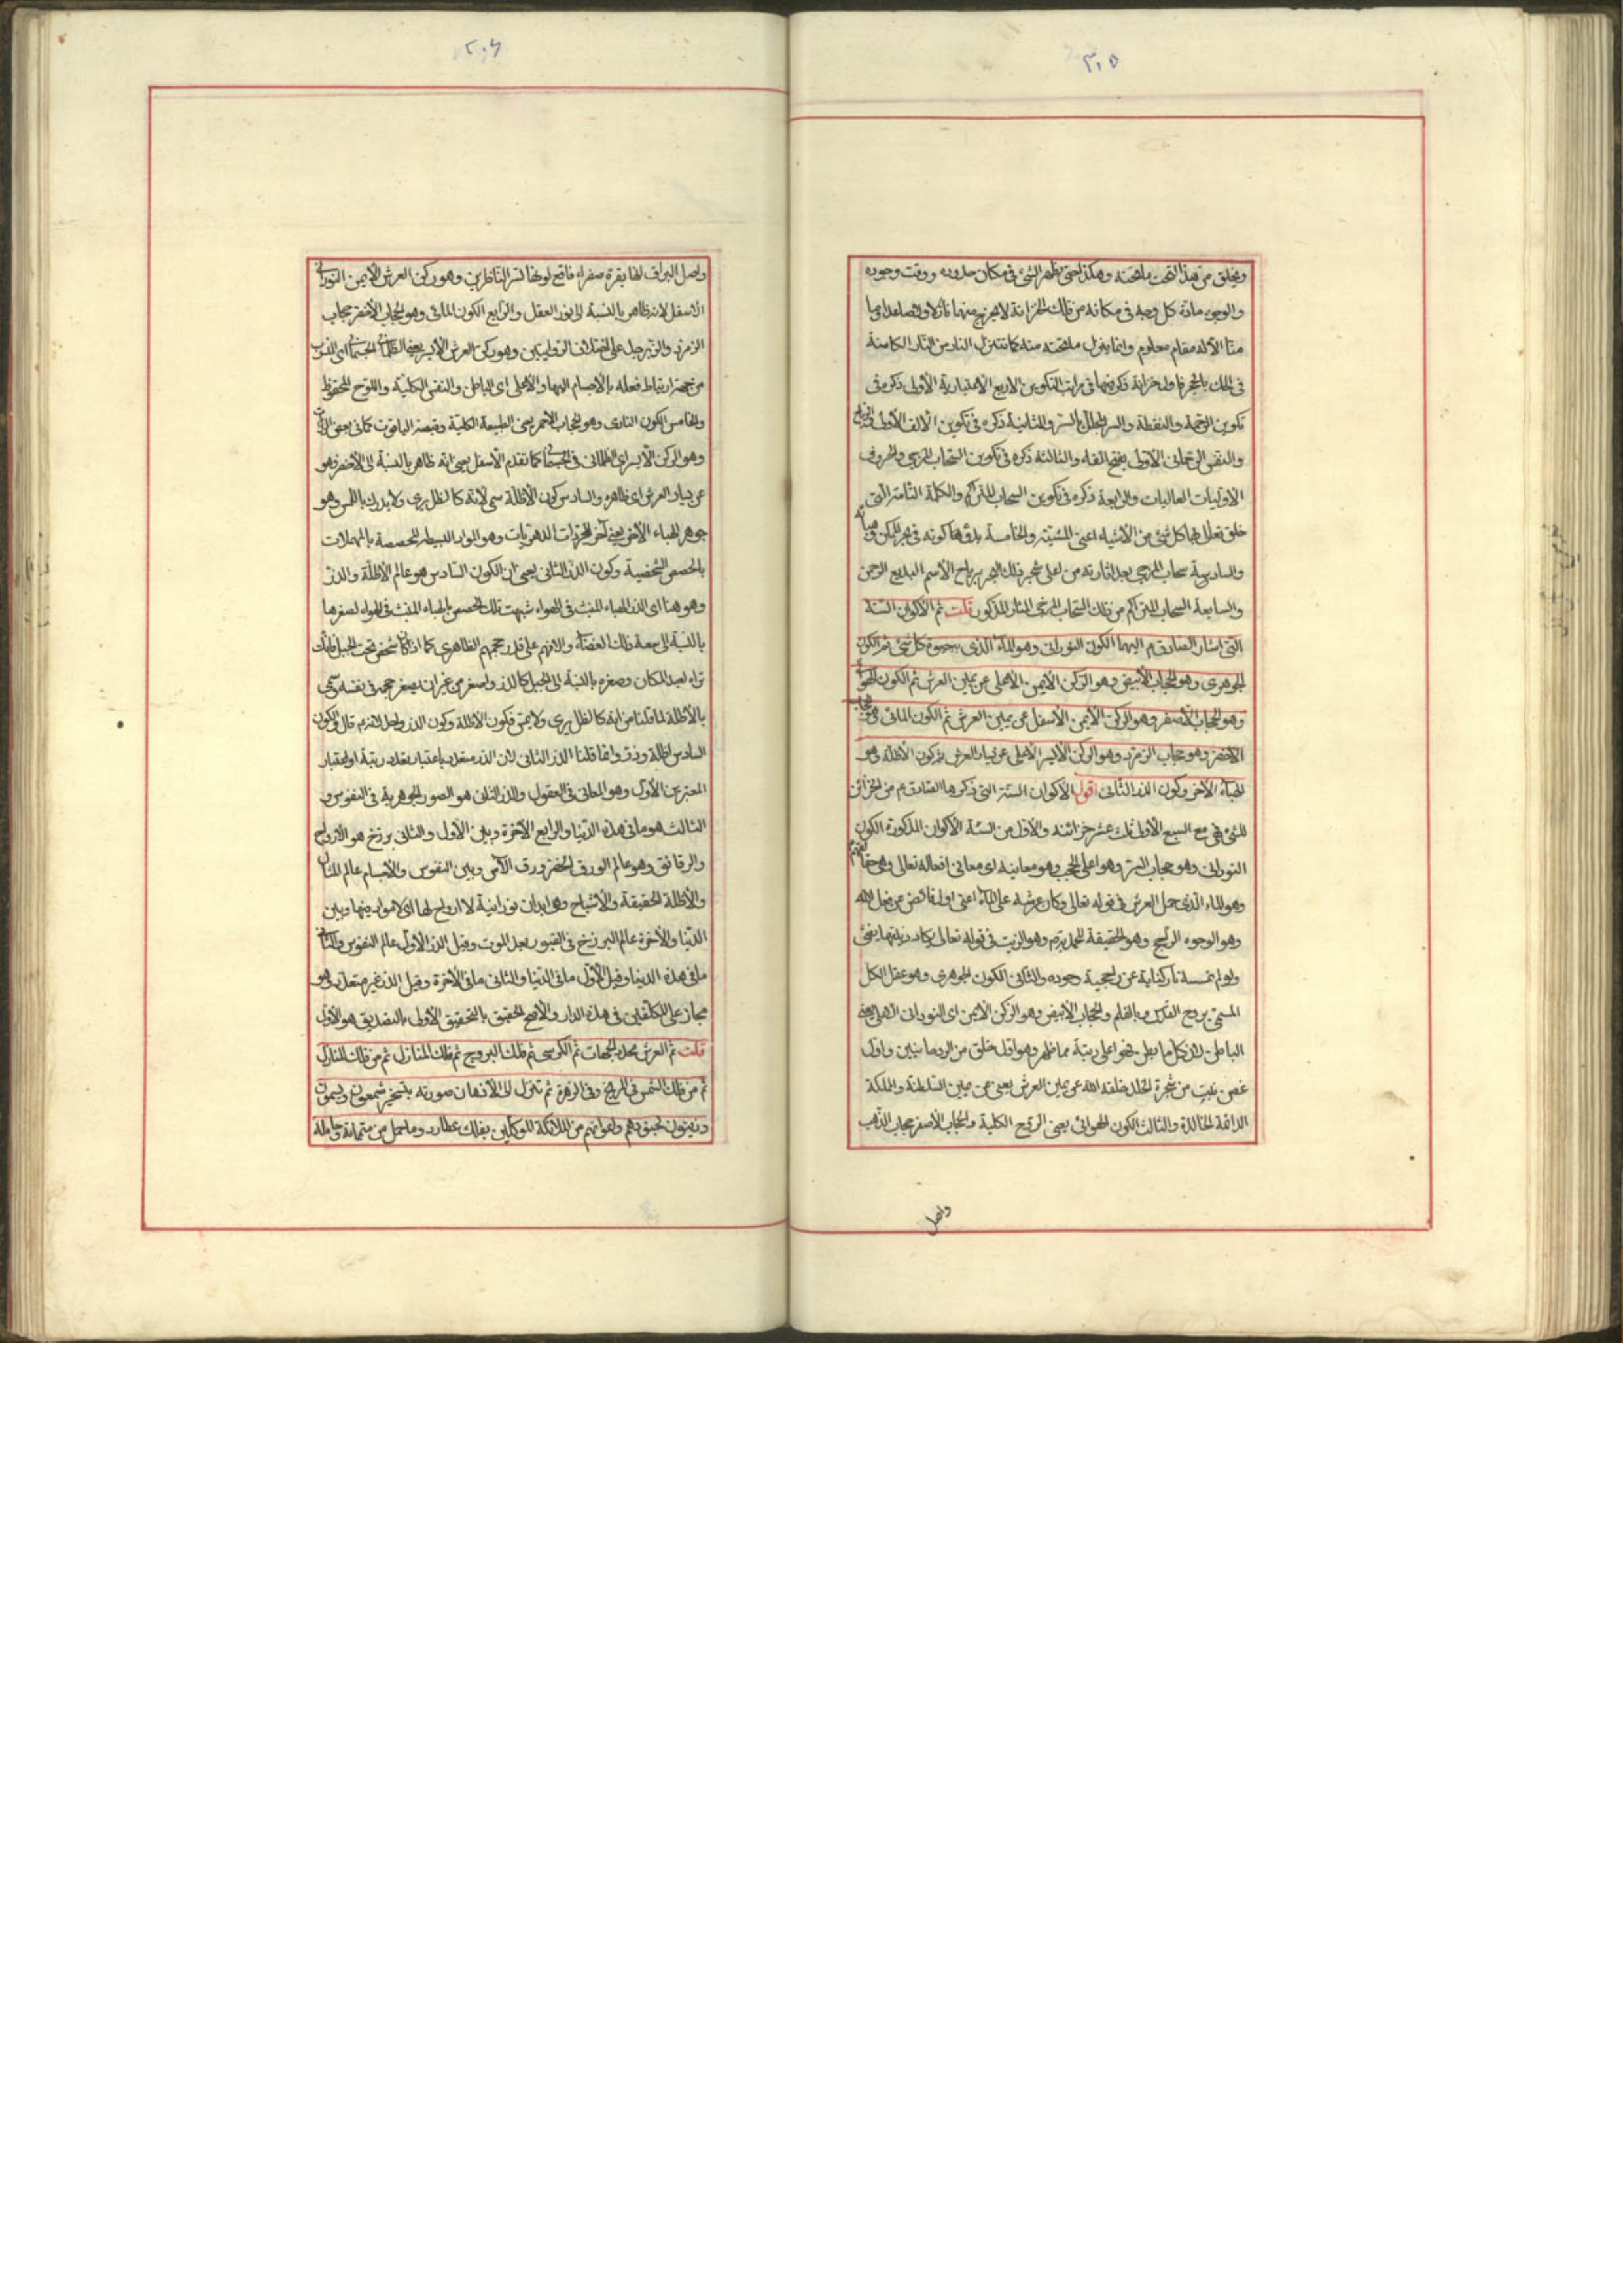 ٢٠٥
ويخلق من هذا التحت ما تحته وهكذا حتى يظهر الشئ في مكان حدوده ووقت وجوده
والوجود مادة كل وجه في مكانه من تلك الخزانة لا يخرج منها نازلا ولا صاعدا وما
منا الا له مقام معلوم وانما ينزل ما تحته منه كما تتنزل النار من النار الكامنة
في تلك بالحجر فاول خزانة ذكره فيها في مراتب التكوين الاربع الاعتبارية الأولى ذكره في
تكوين الرحمة والنقطة والسر المجلل بالسر والثانية ذكره في تكوين الألف الأولى والرياح
والنفس الرحماني الأولى بفتح الفاء والثالثة ذكره في تكوين السحاب المزجي والحروف
الاوليات العاليات والرابعة ذكره في تكوين السحاب المتراكم والكلمة التامة التي
خلق تعالى بها كل شئ من الأشياء اعني المشية والخامسة بدؤها كونه في بحر المكن
والسادسة سحاب المزجي بعد اثارته من اعلى شجر ذلك البحر برياح الأسم البديع الرحمن
والسابعة السحاب المتراكم من ذلك السحاب المزجى المثار المذكور قلت ثم الاكوان الستة
التي اشار الصادق م اليها الكون النوراني وهو الماء الذي به حيوة كل شئ ثم الكون
الجوهري وهو الحجاب الأبيض وهو الركن الأيمن الأعلى عن يمين العرش ثم الكون الهوائي
وهو الحجاب الأصفر وهو الركن الأيمن الأسفل عن يمين العرش ثم الكون المائى وهو حجاب
الاخضر وهو حجاب الزمرد وهو الركن الأيسر الأعلى عن يسار العرش ثم كون الأظلة وهو
الهباء الأخر وكون الذر الثاني اقول الأكوان الستة التي ذكرها الصادق عم من الخزائن
للشئ في مع السبع الأولى ثلث عشر خزانة والأول من الستة الأكوان المذكورة الكون
النوراني وهو حجاب السر وهو اعلى الحجب وهو معانيه اى معاني افعاله تعالى وهي حقايقهم
وهو الماء الذي حمل العرش في قوله تعالى وكان عرشه على الماء اعني اول فائض عن فعل الله
وهو الوجود الراجح وهو الحقيقة المحمدية م وهو الزيت في قوله تعالى يكاد زيتها يضئ
ولو لم تمسسه نار كناية عن راجحية وجوده والثاني الكون الجوهري وهو عقل الكل
المسمى بروح القدس وبالقلم والحجاب الأبيض وهو الركن الأيمن اى النوراني الأعلى يعنى
الباطن لان كل ما بطن فهو اعلى رتبة مما ظهر وهو اول خلق من الروحانيين واول
غصن نبت من شجرة الخلد خلقه الله عن يمين العرش يعني عن يمين السلطنة والملكة
الدائمة الخالدة والثالث الكون الهوائي يعني الروح الكلية والحجاب الأصفر حجاب الذهب
واصل
٢٠٦
واصل البراق لها بقرة صفراء فاقع لونها تسر الناظرين وهو ركن العرش الأيمن النوراني
الأسفل لانه ظاهر بالنسبة الى نور العقل والرابع الكون المائى وهو الحجاب الأخضر حجاب
الزمرد والزبرجد على اختلاف الروايتين وهو ركن العرش الأيسر يعني الظلماني الجسماني اى المنسوب
من جهة ارتباط فعله بالأجسام اليها والأعلى اى الباطن والنفس الكلية واللوح المحفوظ
والخامس الكون النارى وهو الحجاب الأحمر يعني الطبيعة الكلية وقصبة الياقوت كما في بعض
وهو الركن الأيسر اى الظلماني في الجسماني كما تقدم الأسفل يعني انه ظاهر بالنسبة الى الأخضر فهو
عن يسار العرش اى ظاهره والسادس كون الأظلة سمى لأنه كالظل يرى ولا يدرك باللمس وهو
جوهر الهباء الأخر يعني آخر المجردات الدهريات وهو المواد البسيطة المحصصة بالمهملات
بالحصص الشخصية وكون الذر الثاني يعني ان الكون السادس هو عالم الأظلة والذر
وهو هنا اى الذر الهباء المنبث في الهواء شبهت تلك الحصص بالهباء المنبث في الهواء لصغرها
بالنسبة الى سعة ذلك الفضاء والا فهم على قدر حجمهم الظاهرى كما اذا كان شخص تحت الجبل فانك
تراه لبعد المكان وصغره بالنسبة الى الجبل كالذر واصغر من غير ان يصغر حجمه في نفسه وسمى
بالأظلة لما قلنا من انه كالظل يرى ولا يمس فكون الأظلة وكون الذر واحد لانه م قال في الكون
السادس اظلة وذر وانما قلنا الذر الثاني لان الذر متعدد باعتبار تعدد رتبة او اعتبار
المعتبرين الأول وهو المعاني في العقول والذر الثاني هو الصور الجوهرية في النفوس و
الثالث هو ما في هذه الدنيا والرابع الأخرة وبين الأول والثاني برزخ هو الأرواح
والرقائق وهو عالم الورق الخضر ورق الآس وبين النفوس والأجسام عالم المثال
والأظلة الحقيقة والأشباح وهي ابدان نورانية لا ارواح لها اى لا مواد فيها وبين
الدنيا والأخرة عالم البرزخ في القبور بعد الموت وقيل الذر الأول عالم النفوس والثاني
ما في هذه الدنيا وقيل الأول ما في الدنيا والثاني ما في الأخرة وقيل الذر غير متعدد وهو
مجاز على المكلفين في هذه الدار والأصح الحقيق بالتحقيق الأولى بالتصديق هو الأول
قلت ثم العرش محدد الجهات ثم الكرسي ثم فلك البروج ثم فلك المنازل ثم من فلك المنازل
ثم من فلك الشمس في المريخ وفي الزهرة ثم تنزل الى الأذهان صورته بتسخير شمعون وسيمون
وزيتون لجنودهم واعوانهم من الملائكة الموكلين بفلك عطارد وما حمل من متمماته وحامله